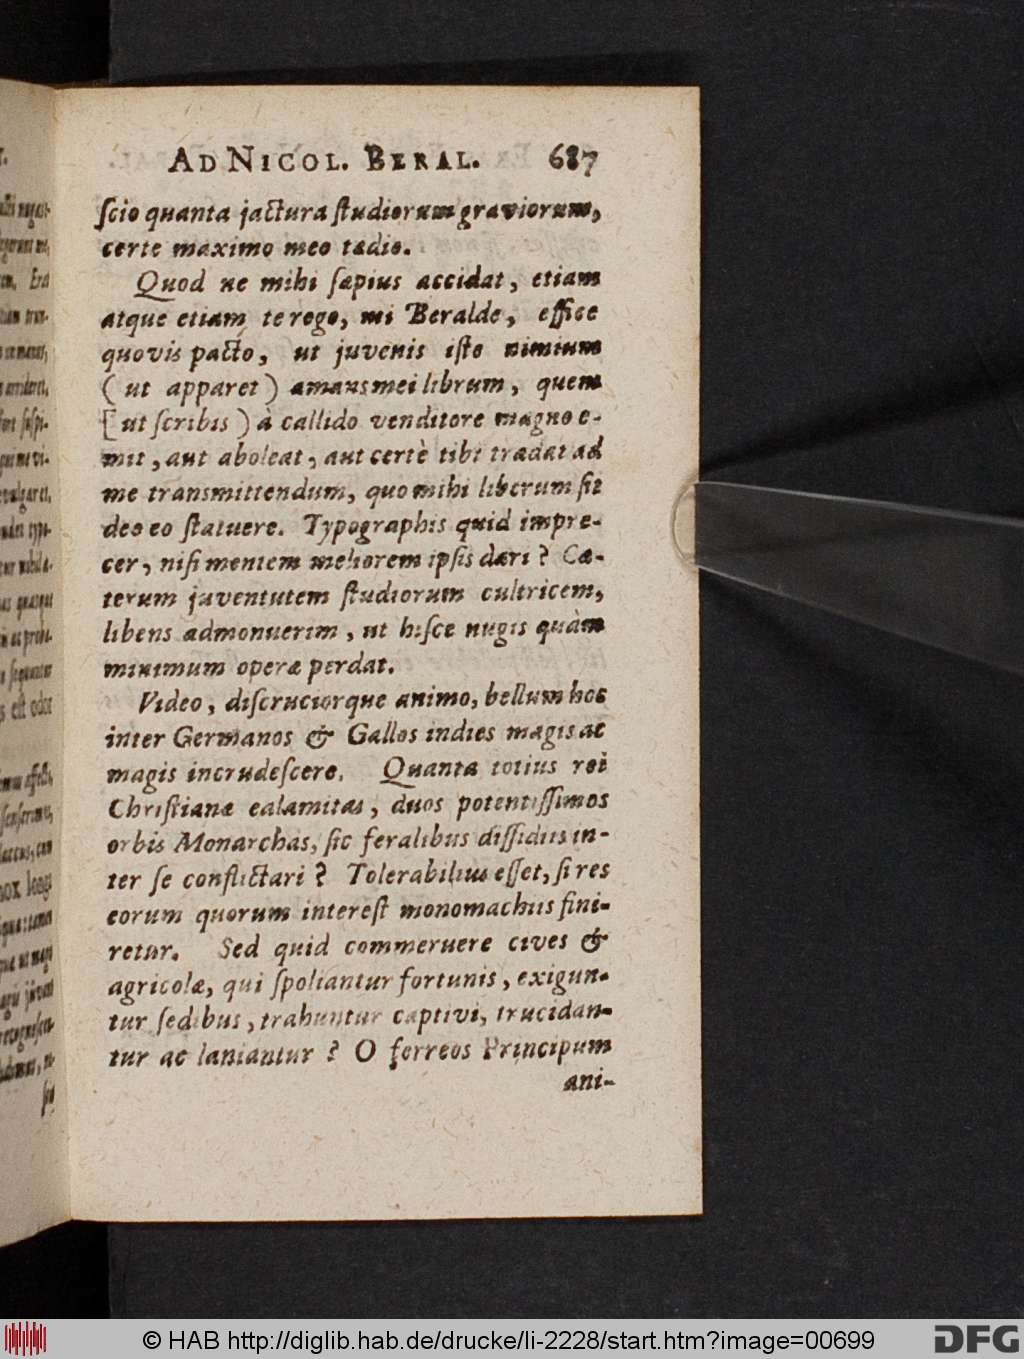 AD NICOL. BERAL. 687
ſcio quanta jactura ſtudiorum graviorum,
certe maximo meo tædio.
Quod ne mihi ſæpius accidat, etiam
atque etiam te rogo, mi Beralde, effice
quovis pacto, ut juvenis iſte nimium
( ut apparet ) amans mei librum, quem
[ ut ſcribis ) à callido venditore magno e-
mit, aut aboleat, aut certè tibi tradat ad
me transmittendum, quo mihi liberum ſit
deo eo ſtatuere. Typographis quid impre-
cer, niſi mentem meliorem ipſis dari ? Cæ-
terum juventutem ſtudiorum cultricem,
libens admonuerim, ut hiſce nugis quàm
minimum operæ perdat.
Video, diſcruciorque animo, bellum hoc
inter Germanos & Gallos indies magis ac
magis incrudeſcere. Quanta totius rei
Chriſtianæ calamitas, duos potentiſſimos
orbis Monarchas, ſic feralibus diſſidiis in-
ter ſe conflictari ? Tolerabilius eſſet, ſi res
eorum quorum intereſt monomachiis fini-
retur. Sed quid commeruere cives &
agricolæ, qui ſpoliantur fortunis, exigun-
tur ſedibus, trahuntur captivi, trucidan-
tur ac laniantur ? O ferreos Principum
ani-
© HAB http://diglib.hab.de/drucke/li-2228/start.htm?image=00699
DFG